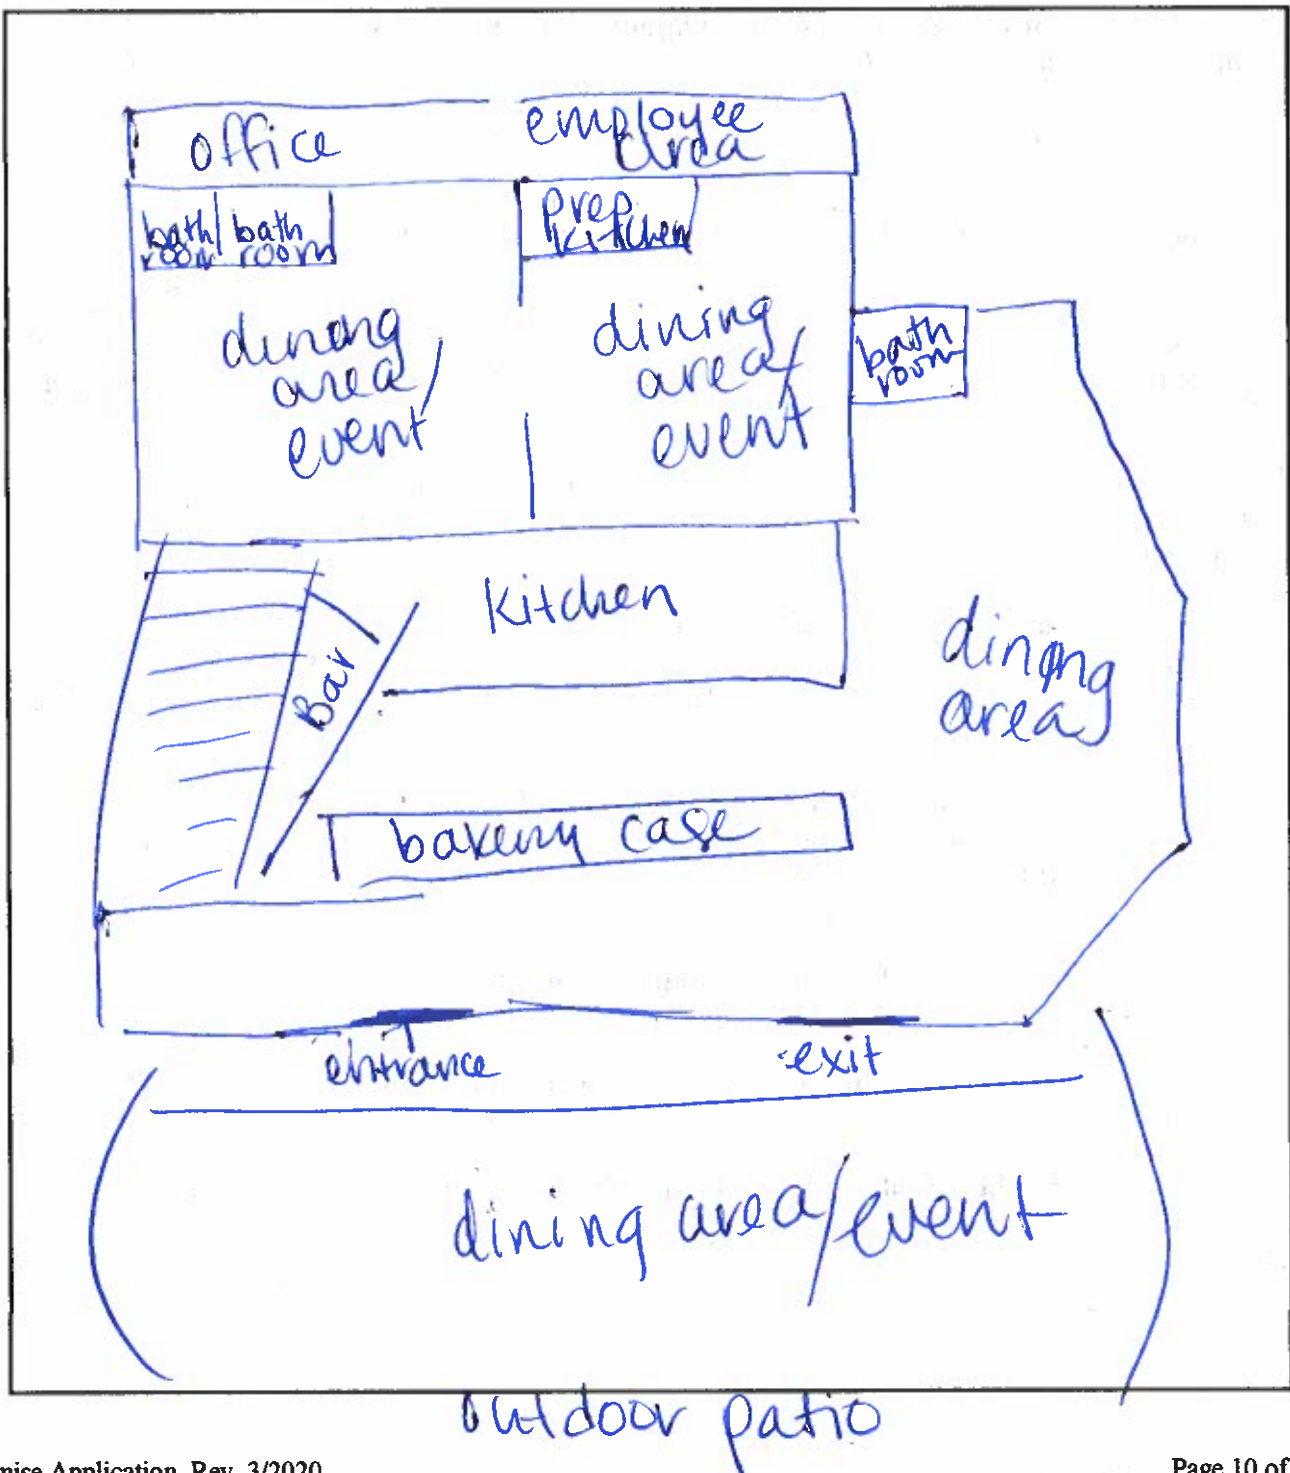 office
employee
area
bath/
room
bath
room
prep
kitchen
dining
area/
event
dining
area/
event
bath
room
kitchen
Bar
dining
area
bakery case
entrance
exit
dining area/event
outdoor patio
mise Application, Rev. 3/2020
Page 10 of